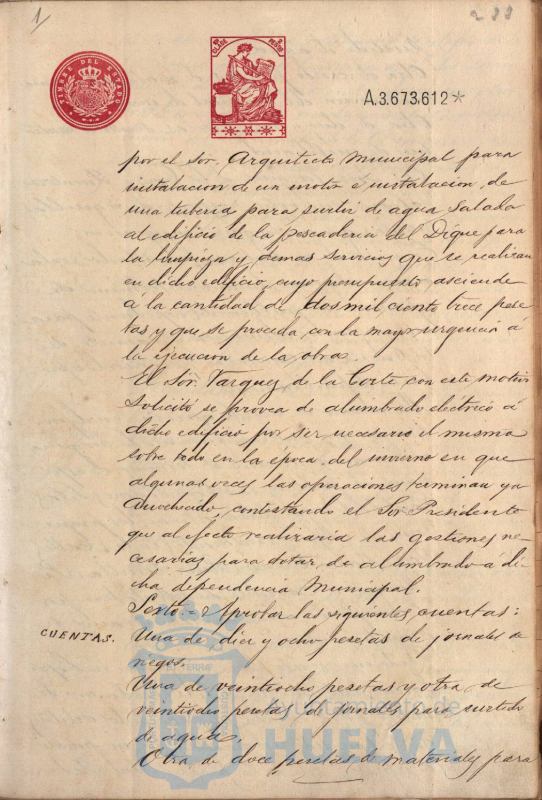 1/
288
TIMBRE DEL ESTADO
CLASE
PESOS
A.3.673.612*
por el Sor. Arquitecto Municipal para
instalacion de un motor é instalacion de
una tuberia para surtir de agua salada
al edificio de la pescaderia del Dique para
la limpieza y demas servicios que se realizan
en dicho edificio, cuyo presupuesto asciende
á la cantidad de dos mil ciento trece pese
tas y que se proceda con la mayor urgencia á
la ejecucion de la obra.
El Sor. Vazquez de la Corte con este motivo
solicitó se provea de alumbrado electrico á
dicho edificio por ser necesario el mismo
sobre todo en la época del invierno en que
algunas veces las operaciones terminan ya
anochecido, contestando el Sor. Presidente
que al efecto realizaria las gestiones ne-
cesarias para dotar de alumbrado á di
cha dependencia Municipal.
Sexto.- Aprobar las siguientes cuentas:
CUENTAS.
Una de diez y ocho pesetas de jornales de
riegos.
Una de veintiocho pesetas y otra de
veintiocho pesetas de jornales para surtido
de agua.
Otra de doce pesetas de materiales para
Ayuntamiento de
HUELVA